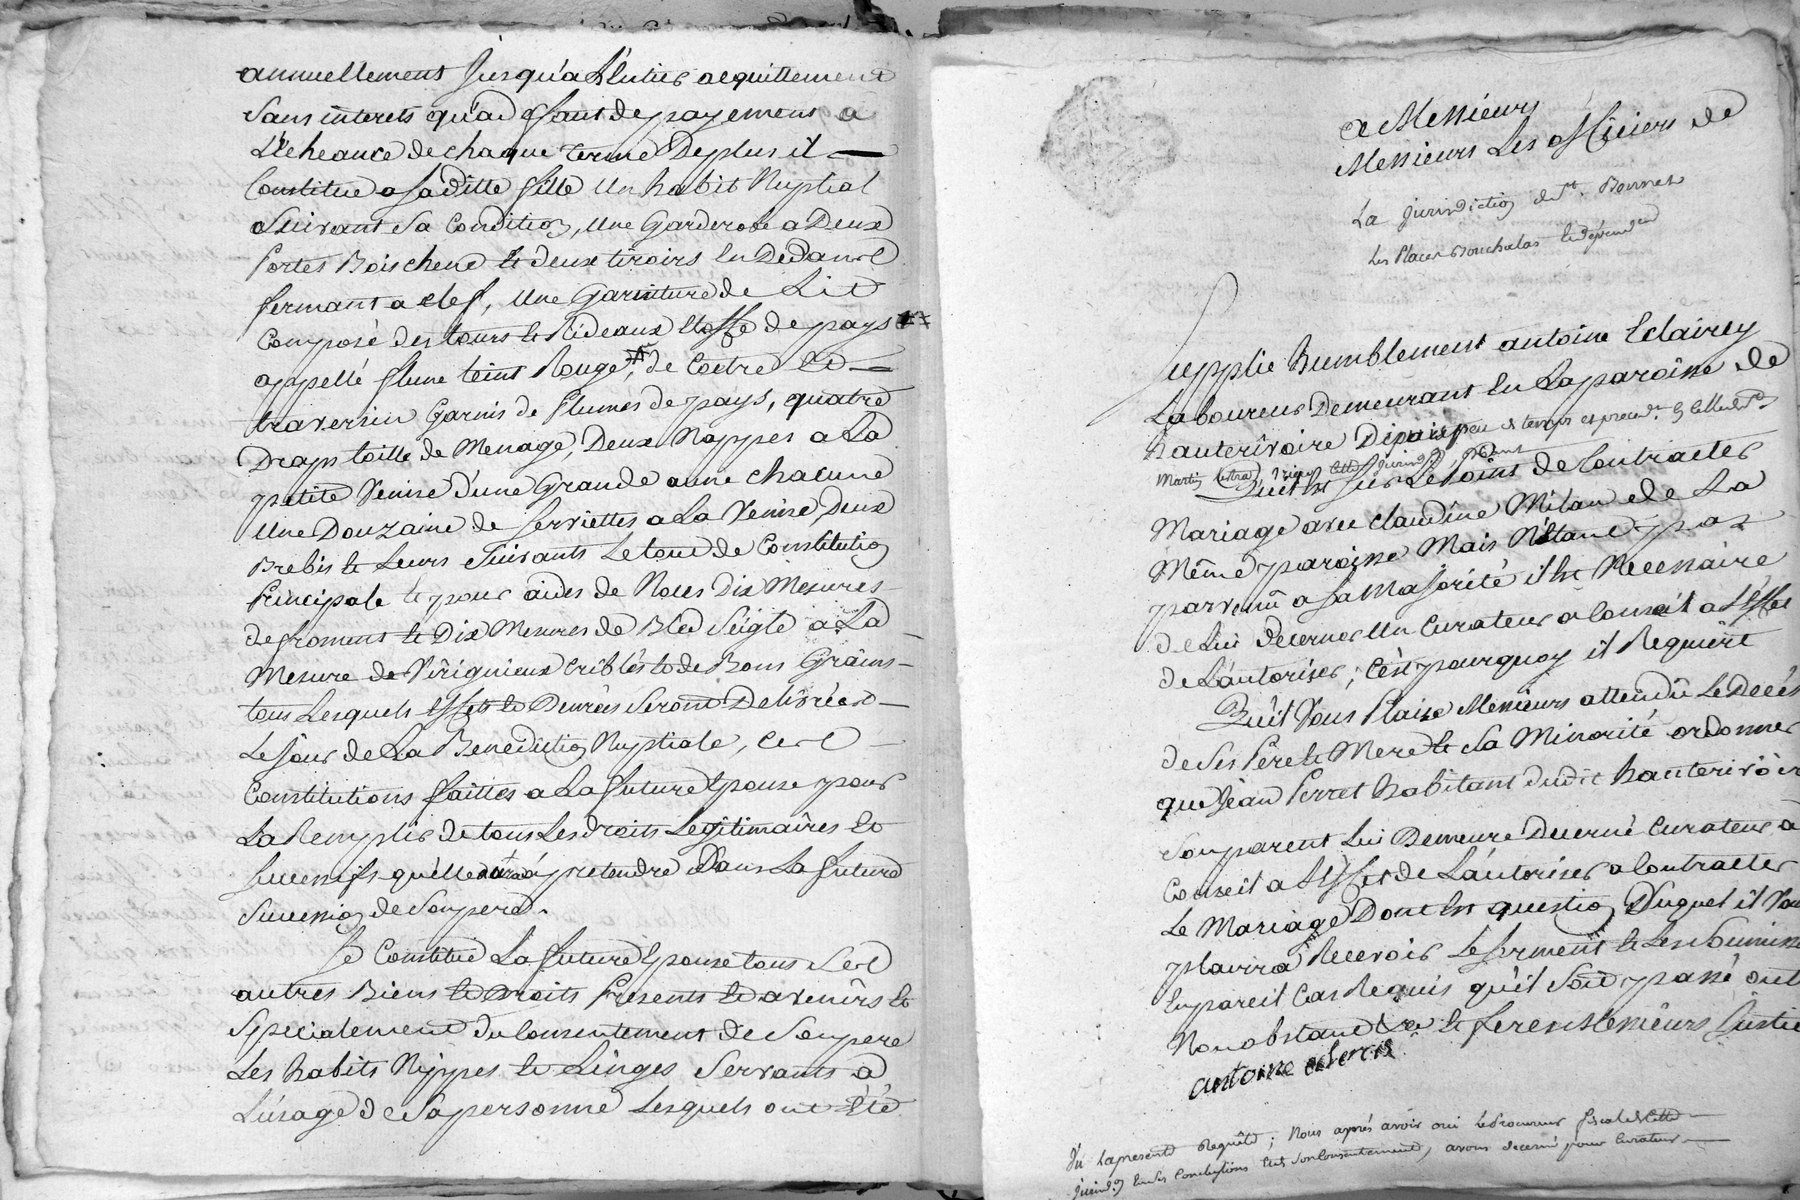 annuellement Jusqu'a L'entier acquittement
Sans interets qu'a deffaut de payement a
L'echeance de chaque terme De plus il
Constitue a Saditte fille Un habit Nuptial
Suivant Sa Condition, Une Garderobe a Deux
Portes Bois chene et deux tiroirs En Dedans
fermant a clef, Une Garniture de Lit
Composé des tours et Rideaux Etoffe de pays
appellé flune teint Rouge, de Coetre et
traversin Garnis de Plumes de pays, quatre
Draps toille de Menage, Deux Nappes a La
petite Venise d'une Grande aune chacune
Une Douzaine de Serviettes a La Venise, Deux
Brebis et Leurs Suivants Le tout de Constitution
Principale et pour aides de Noces Dix Mesures
de froment et Dix Mesures de Bled Seigle a La
Mesure de Verignieux Criblés et de Bons Grains
tous Lesquels Effets et Denrées Seront Delivrées
Le Jour de La Benediction Nuptiale, Ces
Constitutions faittes a La future Epouse pour
La Remplir de tous Les droits Legitimaires et
Successifs qu'elle aura a pretendre Dans La future
Succession de Son pere.
Se Constitue La future Epouse tous Ses
autres Biens et Droits Presents et avenirs et
Specialement du Consentement de Son pere
Les habits Nippes et Linges Servants a
L'usage de Sa personne Lesquels ont été
a Messieurs
Messieurs Les officiers de
La Jurisdiction de St. Bonnet
Les Places Bouchalas
Supplie humblement antoine Eclairey
Laboureur Demeurant En La paroisse de
hauterivoire Depuis peu de temps et preced.t En Celle de St
Martin
Qu'il est Sur Le point de Contracter
Mariage avec claudine Milan de La
Même paroisse Mais N'etant pas
parvenu a Sa Majorité il Est Necessaire
de Lui decerner Un Curateur a Conseil a L'effet
de L'autoriser; C'est pourquoy il Requiert
Qu'il Vous Plaise Messieurs attendu Le Decés
de Ses Pere et Mere et Sa Minorité ordonner
que Jean Perret habitant dudit hauterivoire
Son parent Lui Demeure Decerné Curateur a
Conseil a L'Effet de L'autoriser a Contracter
Le Mariage Dont Est question Duquel il Vous
plaira Recevoir Le Serment et Les Soumissions
En pareil Cas Requis qu'il Soit passé outre
Nonobstant et Ferez Messieurs Justice
antoine
Vu La presente Requête; Nous après avoir oui Le Procureur fiscal de Cette
Jurisd.on En Ses Conclusions Et de Son Consentement, avons decerné pour Curateur